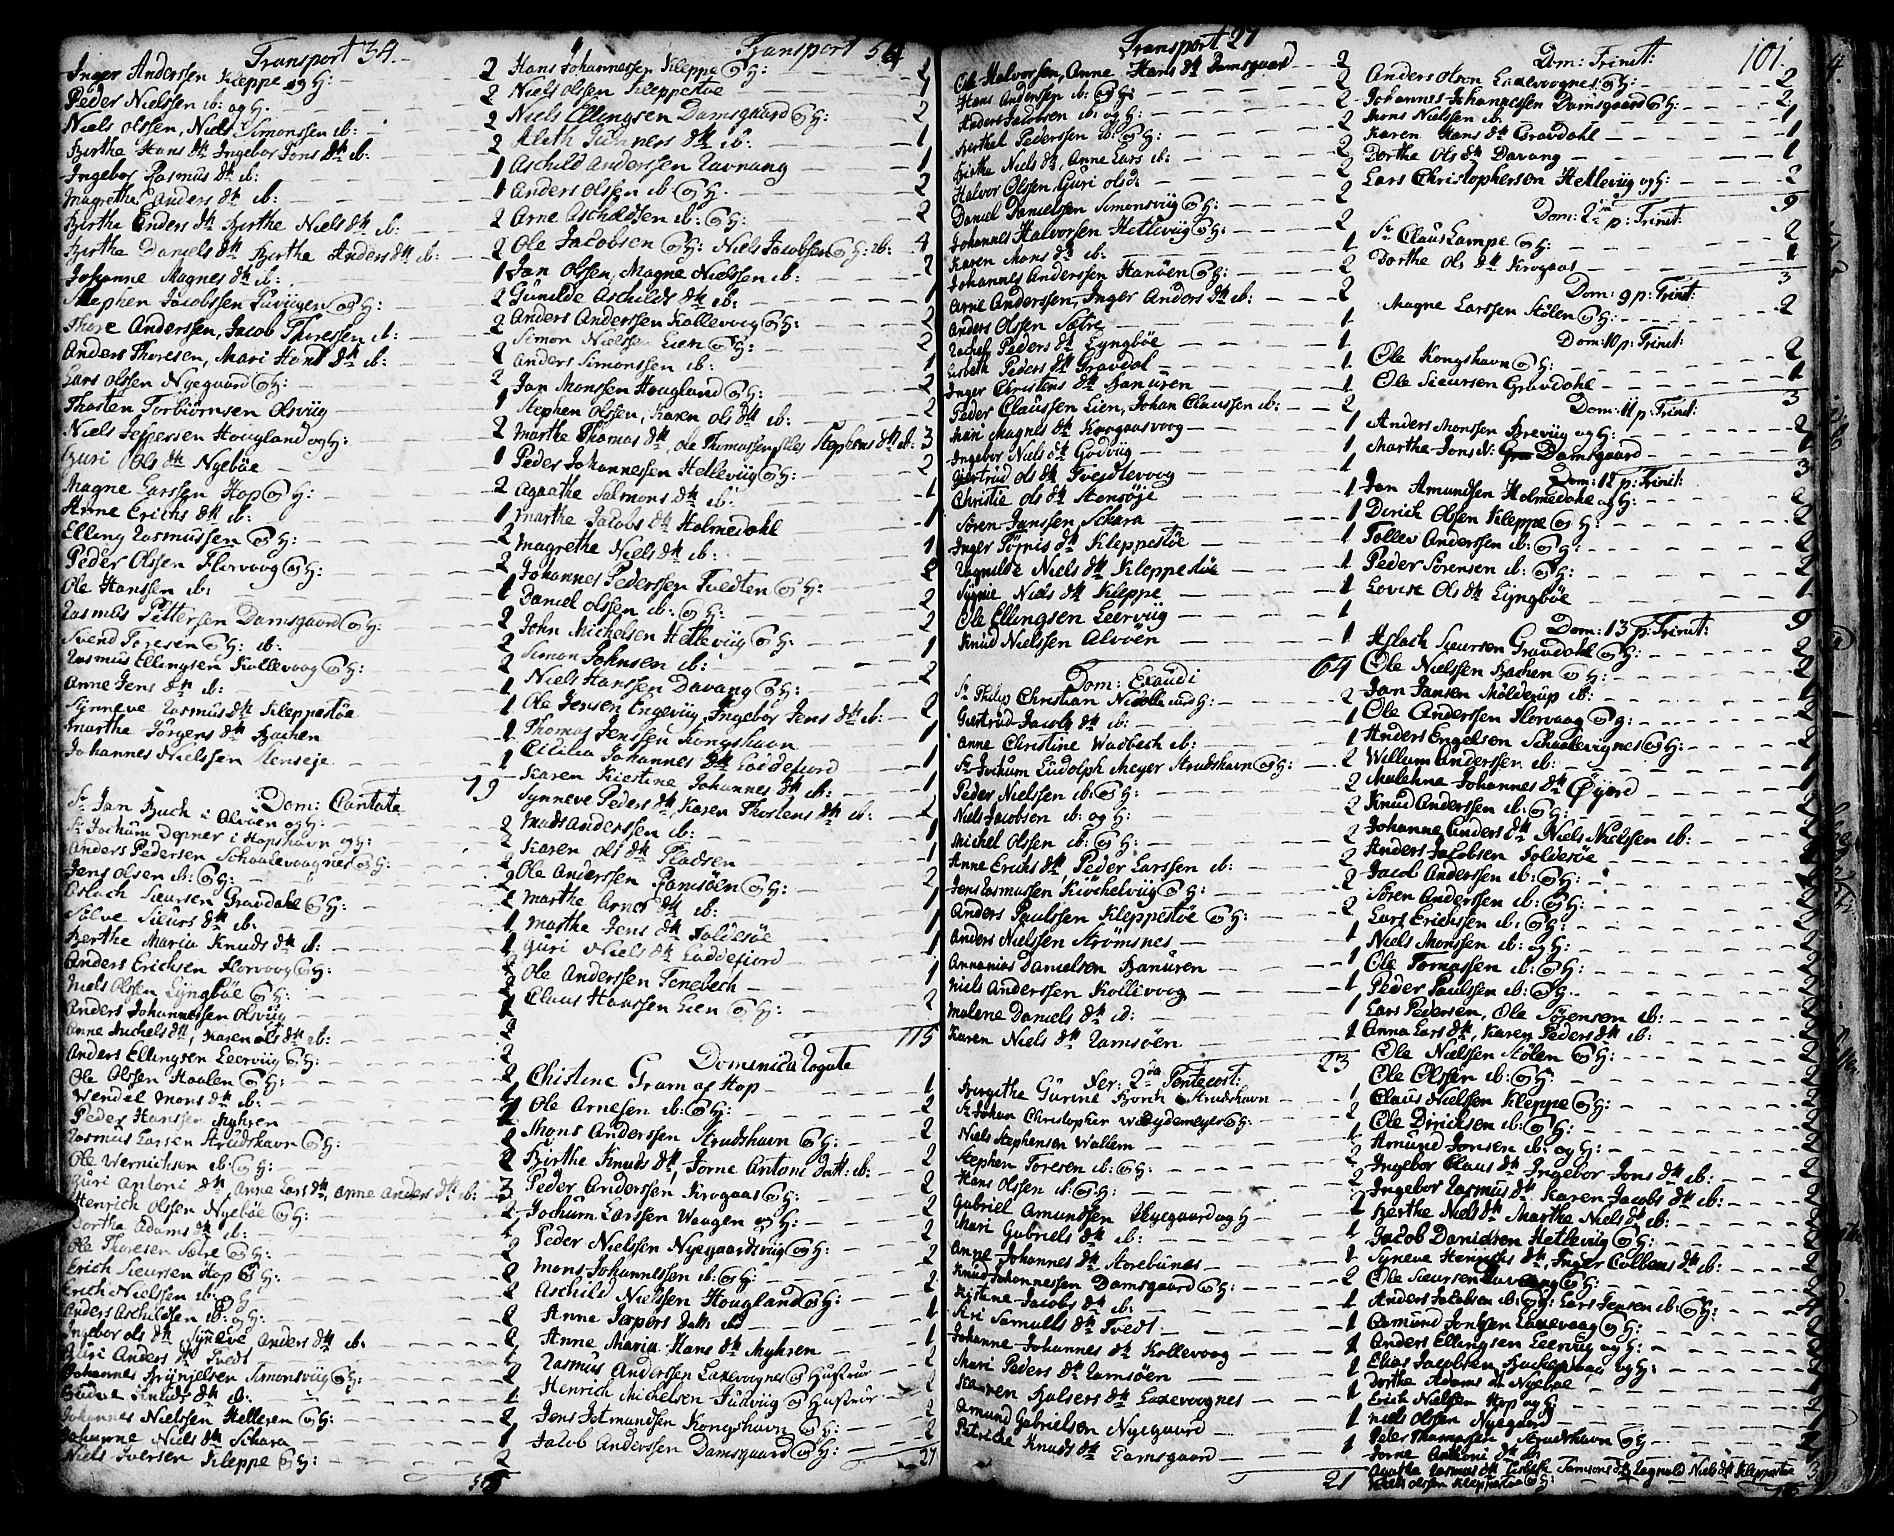 Transport 34.
Inger Anderssen Kleppe og H: 2
Peder Nielssen ib: og H. 2
Niels Olssen, Niels Simonssen ib: 2
Birthe Hans dtr Ingebor Jons dtr ib: 2
Ingebor Rasmus dtr ib: 1
Magrethe Anders dtr ib: 1
Birthe Enders dtr Birthe Niels dtr ib: 2
Birthe Daniels dtr Birthe Anders dtr ib: 2
Johanne Magnes dtr ib: 1
Stephen Jacobssen og H: 2
Thore Anderssen, Jacob Thoressen ib: 2
Anders Thoresen, Mari Hans dtr ib: 2
Lars Olssen Nyegaard og H: 2
Thosten Torbiørnsen Olsviig 1
Niels Jespersen Hougland og H: 2
Guri Ols dtr Nyebøe 1
Magne Larssen Hop og H: 2
Anne Erichs dtr ib: 1
Elling Rasmussen og H: 2
Peder Olssen Florvoog og H: 2
Ole Hanssen ib: 1
Rasmus Pettersen Damsgaard og H: 2
Svend Toresen og H: ib: 2
Rasmus Ellingsen Kollevoog og H: 2
Anne Jens dtr ib: 1
Synneve Rasmus dtr Kleppestøe 1
Marthe Jørgens dtr Bachen 1
Johannes Nielssen Stenseje 1
79
Dom: Cantate
Sr Jan Buch i Alvøen og H: 2
Sr Jochum Depner i Hopshavn og H: 2
Anders Pedersen Schaalevoognes og H: 2
Jens Olsen ib: og H: 2
Eslach Sieursen Gravdahl og H: 2
Sølve Sieurs dtr ib: 1
Berthe Maria Knuds dtr ib: 1
Anders Erichsen Florvoog og H: 2
Niels Olssen Lyngbøe og H: 2
Anders Johannessen Olsviig 1
Anne Michels dtr, Karen Ols dtr ib: 2
Anders Ellingsen Leerviig og H: 2
Ole Olssen Haalen og H: 2
Wendel Mons dtr ib: 1
Peder Hanssen Myhren 1
Rasmus Larsen Strudshavn og H: 2
Ole Wernichsen ib: og H: 2
Guri Antoni dtr Anne Lars dtr, Anne Anders dtr ib: 3
Henrich Olssen Nyebøe og H: 2
Dorthe Adams dtr ib: 1
Ole Thoresen Sætre og H: 2
Erich Sieursen Hop og H: 2
Erich Nielssen ib: og H: 2
Anders Aschildsen ib: og H: 2
Ingebor Ols dtr Syneve Anders dtr ib: 2
Guri Anders dtr Tvedt 1
Johannes Brynjelssen Simonsviig og H: 2
Johannes Nielssen Hellesen og H: 2
Johanne Niels dtr Schara 1
Niels Iversen Kleppe og H: 2
Transport 54
Hans Johannessen Kleppe og H: 2
Niels Olssen Kleppestøe 1
Niels Ellingsen Damsgaard og H: 2
Aleth Gunners dtr ib: 1
Aschild Anderssen Ravnang 1
Anders Olssen ib og H: 2
Arne Aschildsen ib: og H: 2
Ole Jacobsen og H: Niels Jacobsen og H: ib: 4
Jan Olssen, Magne Nielssen ib: 2
Gunilde Aschilds dtr ib: 1
Anders Anderssen Kollevoog og H: 2
Simon Nielssen Lien og H: 2
Anders Simonssen ib: 1
Jan Monssen Hougland og H: 2
Stephen Olssen, Karen Ols dtr ib: 2
Marthe Thomas dtr, Ole Thomassen, Stephens dtr ib: 3
Peder Johannessen Hetleviig og H: 2
Agaathe Salmons dtr ib: 1
Marthe Jacobs dtr Holmedahl 1
Magrethe Niels dtr ib: 1
Johannes Pederssen Tvedten og H: 2
Daniel Olssen ib: og H: 2
John Michelsen Hetleviig og H: 2
Simon Johnsen ib: 1
Niels Hanssen Davang og H: 2
Ole Jensen Engeviig, Ingebor Jens dtr ib: 2
Thomas Jenssen Kongshavn 1
Cecilia Johannes dtr Laddefiord 1
Karen Kiestine Johannes dtr ib: 1
Synneve Peders dtr, Karen Thostens dtr ib: 2
Mads Anderssen ib: 1
Karen Ols dtr Stadsen 1
Ole Anderssen Ramsøen og H: 2
Marthe Arnes dtr ib: 1
Marthe Jens dtr Toldesøe 1
Guri Niels dtr Laddefiord 1
Ole Anderssen Tenebech 1
Claus Hanssen Lien og H: 2
115
Domenica Rogate
Christene Gram af Hop 1
Ole Arnesen ib: og H: 2
Mons Anderssen Strudshavn og H: 2
Birthe Knuds dtr, Jorne Antoni datt: ib: 2
Peder Anderssen Krogaas og H: 2
Jochum Larssen Waagen og H: 2
Peder Nielssen Nyegaardsviig og H: 2
Mons Johannessen ib: og H: 2
Aschild Nielssen Hougland og H: 2
Anne Jespers datt: ib: 1
Anne Maria Hans dtr Myhren 1
Rasmus Anderssen Laxevoognes og Hustrue 2
Henrich Michelsen Tudviig og Hustrue 2
Jens Jetmundsen Kongshavn og H: 2
Jacob Anderssen Damsgaard og H: 2
27
Transport 27
Ole Halvorsen, Anne Hans dtr Damsgaard 2
Hans Anderssen ib: og H: 2
Anders Jacobsen ib: og H: 2
Berthel Pederssen ib: og H: 2
Birthe Niels dtr, Anne Lars ib: 2
Halvor Olssen, Guri Olsd: 2
Daniel Danielssen Simonsviig og H: 2
Johannes Halvorsen Hetleviig og H: 2
Karen Mons dtr ib: 1
Johannes Anderssen Hanøen og H: 2
Arne Anderssen, Inger Anders dtr ib: 2
Anders Olssen Sætre 1
Rachel Peders dtr Lyngbøe 1
Lisbeth Peders dtr Gravdal 1
Inger Christens dtr Hanuren 1
Peder Claussen Lien, Johan Claussen ib: 2
Mari Magnes dtr Krogaasvoog 1
Ingebor Niels dtr Godviig 1
Giertrud Ols dtr 1
Christie Ols dtr Stensøje 1
Søren Janssen Schara 1
Inger Tørnis dtr Kleppestøe 1
Ragnilde Niels dtr Kleppestøe 1
Sygnie Niels dtr Kleppe 1
Ole Ellingsen Leerviig 1
Knud Nielssen Alvøen 1
64
Dom: Exaudi
Sr Philip Christian og H: 2
Giertrud Jacobs dtr ib: 1
Anne Christine Wadbech ib: 1
Sr Jochum Ludolph Meyer Strudshavn og H: 2
Peder Nielssen ib: og H: 2
Niels Jacobsen ib: og H: 2
Michel Olssen ib: og H: 2
Anne Erichs dtr, Peder Larssen ib: 2
Jens Rasmussen Kiøchelviig og H: 2
Anders Paulssen Kleppestøe og H: 2
Anders Nielssen Strømsnes 1
Annanias Danielsen Hanuren 1
Niels Anderssen Kollevoog 1
Malene Daniels dtr ib: 1
Karen Niels dtr Ramsøen 1
23
Fer: 2da Pentecost:
Birgithe Gurine Borch Strudshavn 1
Sr Johan Christopher Weydemeyer og H: 2
Niels Stephensen Wallem 1
Stephen Toresen ib: og H: 2
Hans Olssen ib: og H: 2
Gabriel Amundsen Nyegaard og H 2
Mari Gabriels dtr ib: 1
Anne Johannes dtr Storebunes 1
Knud Johannessen Damsgaard og H: 2
Kistene Jacobs dtr ib: 1
Siri Samuels dtr Tvedt 1
Johanne Johannes dtr Kollevoog 1
Mari Peders dtr Ramsøen 1
Karen Balsers dtr Laxevoognes 1
Amund Gabrielsen Nyegaard 1
Petriche Knuds dtr Damsgaard 1
21
101.
Dom: Trinit:
Anders Olsen Laxevoognes og H: 2
Johannes Johannessen Damsgaard og H: 2
Mons Nielssen ib: 1
Karen Hans dtr Gravdahl 1
Dorthe Ols dtr Davang 1
Lars Christophersen Hetleviig og H: 2
9
Dom: 2 p: Trinit:
Sr Claus Lampe og H: 2
Dorthe Ols dtr Krogaas 1
3
Dom: 9 p: Trinit:
Magne Larssen Stølen og H: 2
Dom: 10 p: Trinit:
Ole Kongshavn og H: 2
Ole Sieursen Gravdahl 1
3
Dom: 11 p: Trinit:
Anders Monssen Breviig og H: 2
Marthe Jons d: Damsgaard 1
3
Dom: 12 p: Trinit:
Jan Amundsen Holmedahl og H: 2
Dirich Olssen Kleppe og H: 2
Tollev Anderssen ib: og H: 2
Peder Sørensen ib: og H: 2
Lovise Ols dtr Lyngbøe 1
9
Dom: 13 p: Trinit:
Aslach Sieursen Gravdahl og H: 2
Ole Nielssen Bachen og H: 2
Jan Jansen Mölderup ib:
Ole Anderssen Florvaag og H: 2
Anders Engelsen Schaalevignes og H: 2
Willum Anderssen ib:
Malehne Johannes dtr Øyjord
Knud Anderssen ib: og H: 2
Johanne Enders dtr Niels Nielssen ib: 2
Anders Jacobsen Toldesøe
Jacob Anderssen ib: og H: 2
Søren Anderssen ib: og H: 2
Lars Erichsen ib: og H: 2
Niels Monssen ib: og H: 2
Ole Tomassen ib: og H: 2
Peder Paulssen ib: og H: 2
Lars Pedersen, Ole Sørensen ib: 2
Anna Lars dtr, Karen Peders dtr ib: 2
Ole Nielssen Stølen og H: 2
Ole Olssen ib: og H: 2
Claus Nielssen Kleppe og H: 2
Ole Dirichsen ib: og H: 2
Amund Jonsen ib: og H: 2
Ingebor Claus dtr Ingebor Jons dtr ib: 2
Ingebor Rasmus dtr Karen Jacobs dtr ib: 2
Berthe Niels dtr Marthe Niels dtr ib: 2
Jacob Danielsen Hetleviig og H: 2
Syneve Henrichs dtr, Inger Colbens dtr ib: 2
Ole Sieursen Davang og H: 2
Anders Jacobsen ib: og H: Lars Jensen ib: og H: 4
Asmund Jonssen Laxevaag og H: 2
Anders Ellingsen Leerviig og H: 2
Elias Jacobsen og H: 2
Dorthe Adams dtr Nyebøe
Erich Nielsen Hop og H:
Niels Olssen Nyegaard
Peter Thomassen Strudshavn og H:
Jorne Anthoni dtr ib:
Agathe Rasmus dtr Lisbeth Tamsons dtr Ragnild Niels dtr Kleppestøe 3
Niels Olssen Kleppestøe og H: